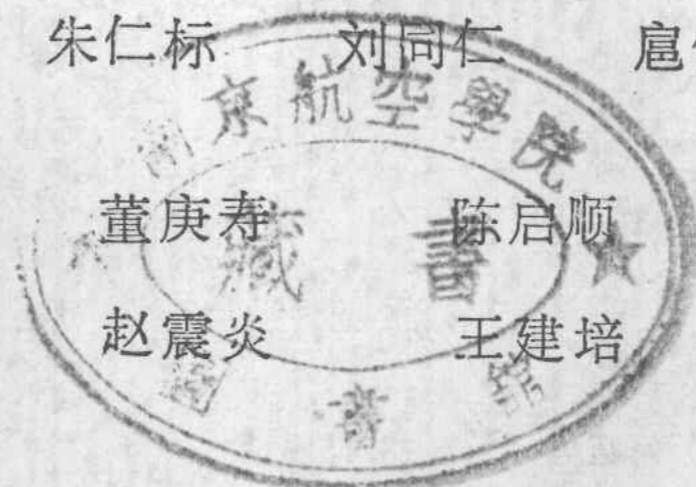 朱仁标 刘同仁 扈
南京航空學院
董庚寿 陈启顺
藏書
赵震炎 王建培
圖書館